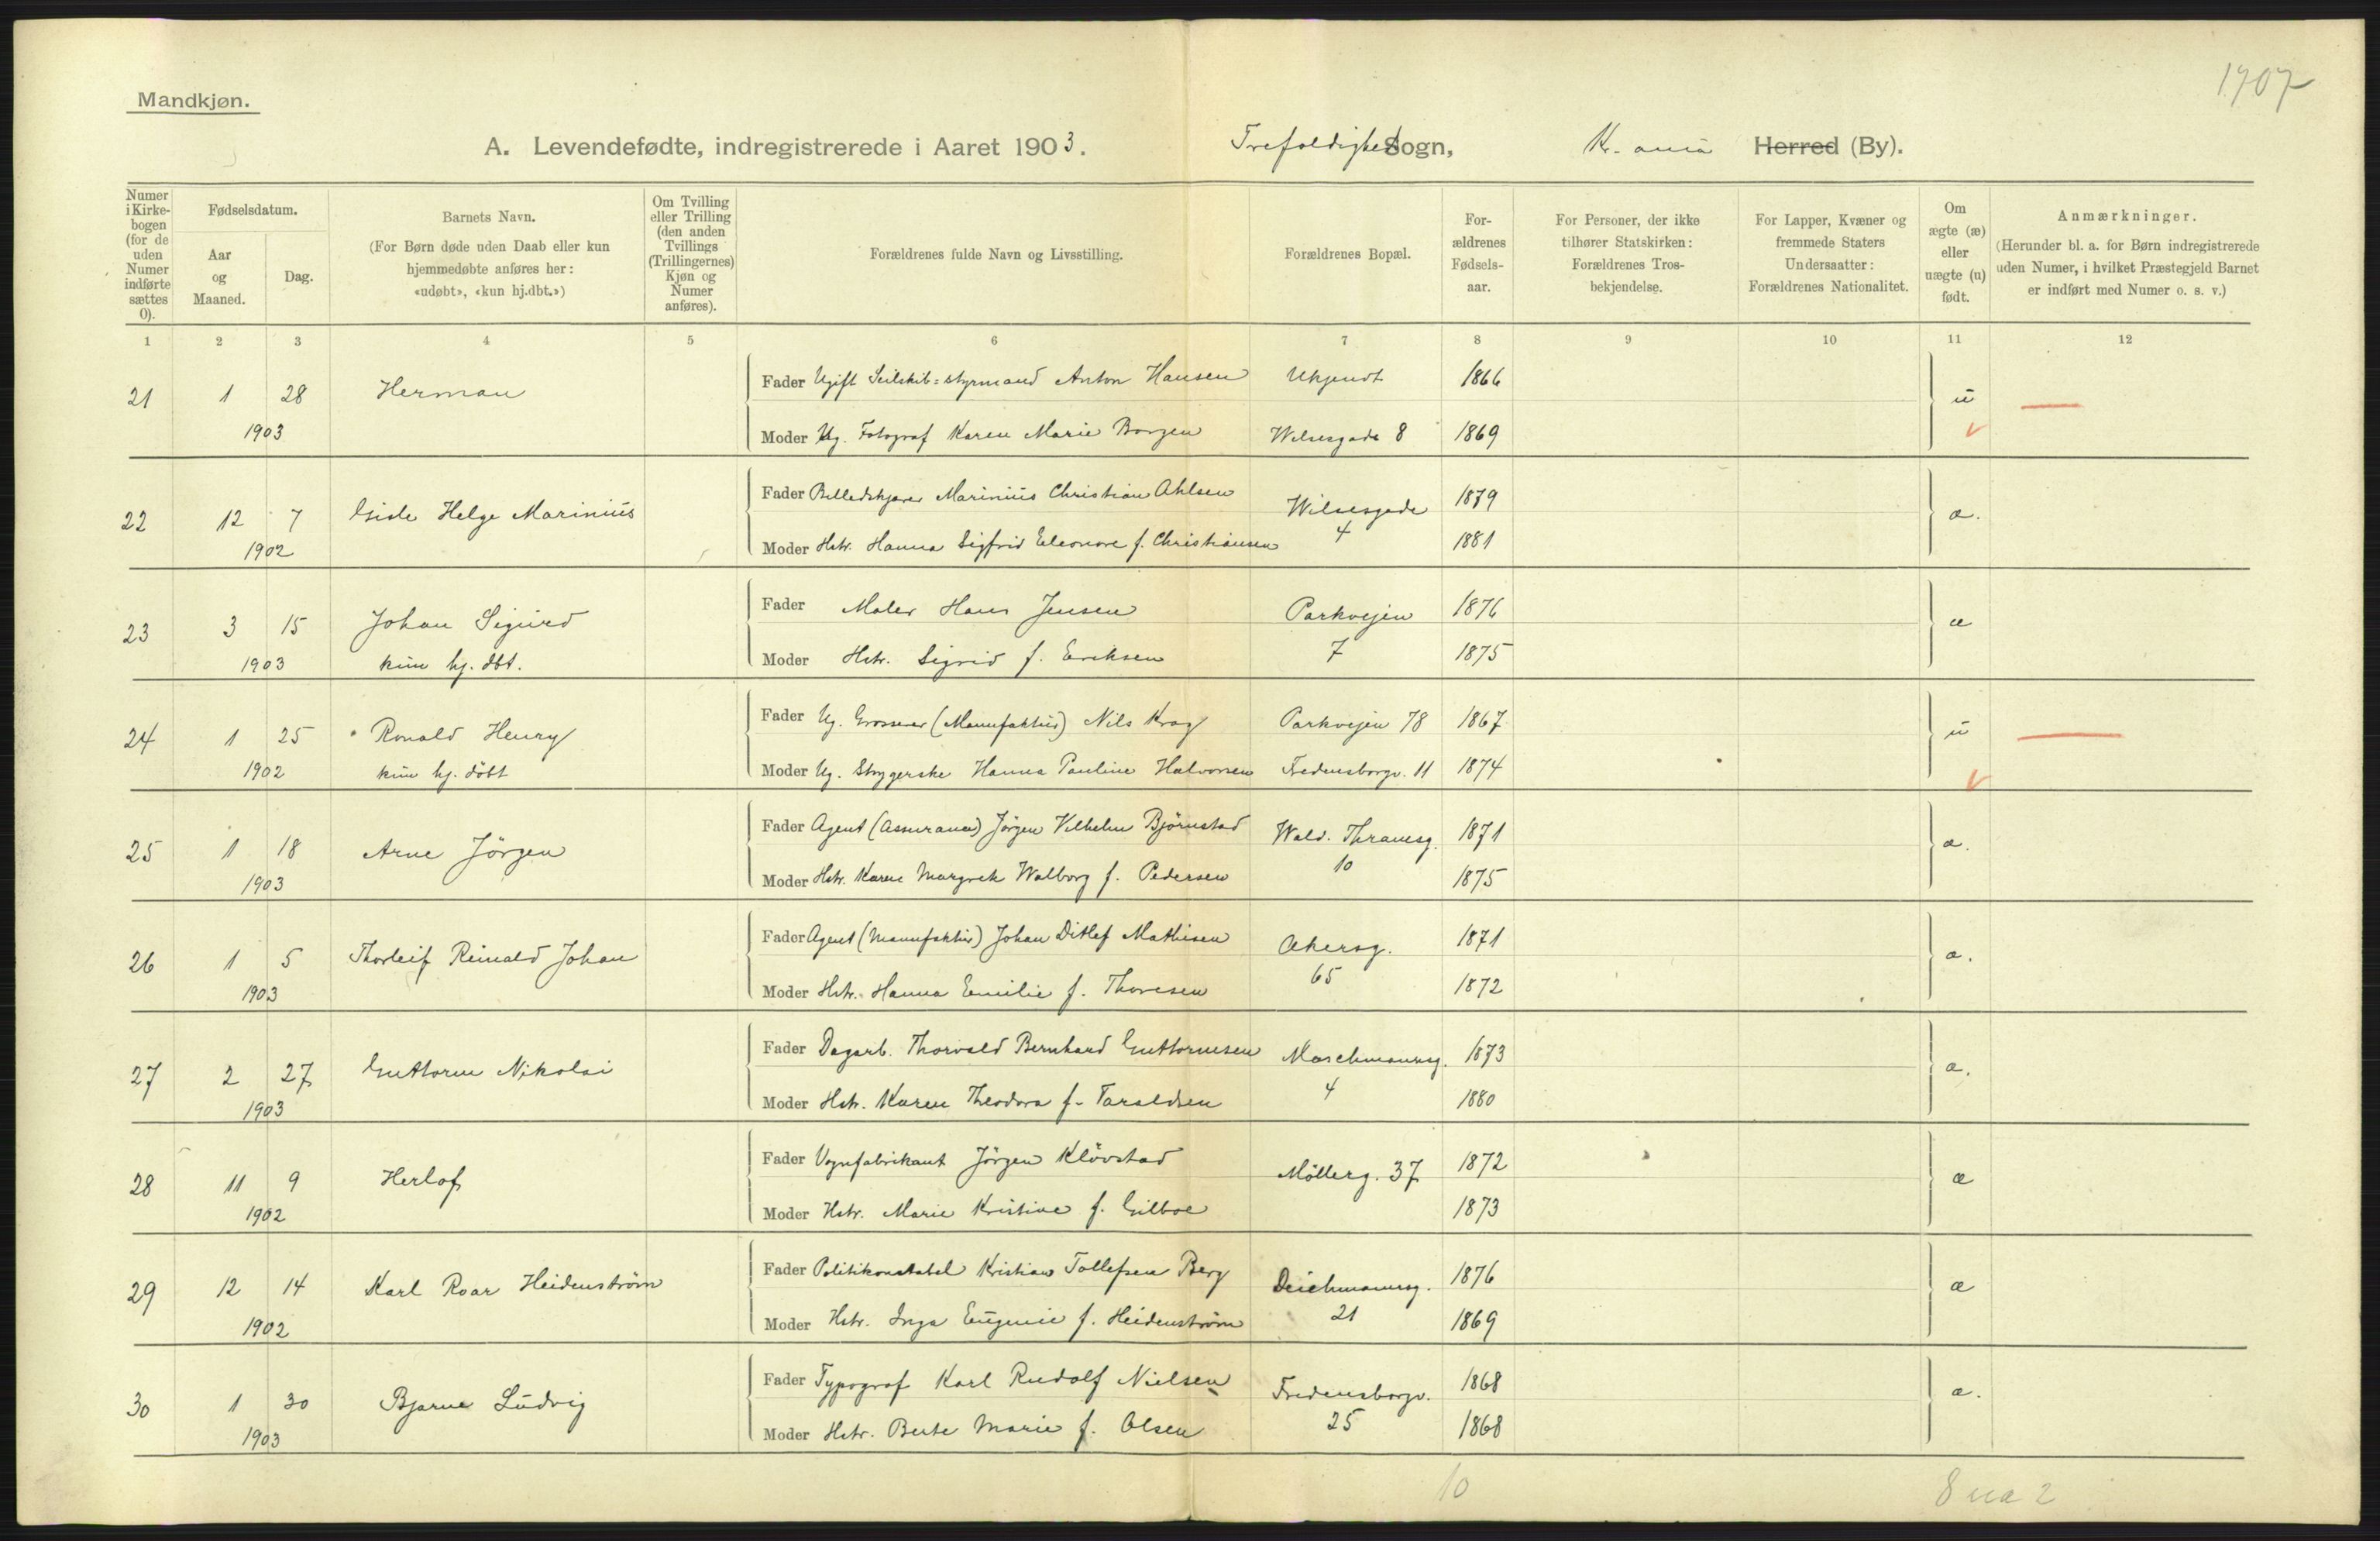 1707
Mandkjøn.
A. Levendefødte, indregistrerede i Aaret 1903. Trefoldighed Sogn, Kr.ania Herred (By).
Numer i Kirkebogen (for de uden Numer indførte sættes 0).
Fødselsdatum.
Aar og Maaned.
Dag.
Barnets Navn.
(For Børn døde uden Daab eller kun hjemmedøbte anføres her: «udøbt», «kun hj.dbt.»)
Om Tvilling eller Trilling (den anden Tvillings (Trillingernes) Kjøn og Numer anføres).
Forældrenes fulde Navn og Livsstilling.
Forældrenes Bopæl.
Forældrenes Fødselsaar.
For Personer, der ikke tilhører Statskirken: Forældrenes Trosbekjendelse.
For Lapper, Kvæner og fremmede Staters Undersaatter: Forældrenes Nationalitet.
Om ægte (æ) eller uægte (u) født.
Anmærkninger.
(Herunder bl. a. for Børn indregistrerede uden Numer, i hvilket Præstegjeld Barnet er indført med Numer o. s. v.)
1 2 3 4 5 6 7 8 9 10 11 12
21 1 28 Herman Fader Ugift Seilskib=styrmand Anton Hansen Ukjendt 1866 u
1903 Moder Ug. Fotograf Karen Marie Borgen Wilsesgade 8 1869
22 12 7 Gisle Helge Marinius Fader Billedskjærer Marinius Christian Ahlsen Wilsesgade 1879 æ.
1902 Moder Hstr. Hanna Sigfrid Eleonore f. Christiansen 4 1881
23 3 15 Johan Sigurd Fader Maler Hans Jensen Parkvejen 1876 æ
1903 kun hj. dbt. Moder Hstr. Sigrid f. Eriksen 7 1875
24 1 25 Ronald Henry Fader Ug. Grosserer (Manufaktur) Nils Krag Parkvejen 78 1867 u
1902 kun hj. döbt Moder Ug. Strygerske Hanna Pauline Halvorsen Fredensborgv. 11 1874
25 1 18 Arne Jörgen Fader Agent (Assurance) Jörgen Vilhelm Björnstad Wald. Thranesg. 1871 æ.
1903 Moder Hstr. Karen Margrek Walborg f. Pedersen 10 1875
26 1 5 Thorleif Reinald Johan Fader Agent (Manufaktur) Johan Ditlef Mathisen Akersg. 1871 æ.
1903 Moder Hstr. Hanna Emilie f. Thoresen 65 1872
27 2 27 Guttorm Nikolai Fader Dagarb. Thorvald Bernhard Guttormsen Maschmannsg. 1873 æ.
1903 Moder Hstr. Karen Theodora f. Taraldsen 4 1880
28 11 9 Herlof Fader Vognfabrikant Jörgen Klövstad Möllerg. 37 1872 æ
1902 Moder Hstr. Marie Kristine f. Gilboe 1873
29 12 14 Karl Roar Heidenström Fader Politikonstabel Kristian Tollefsen Berg Deichmannsg. 1876 æ
1902 Moder Hstr. Inga Eugenie f. Heidenström 21 1869
30 1 30 Bjarne Ludvig Fader Typograf Karl Rudolf Nielsen Fredensborgv. 1868 æ.
1903 Moder Hstr. Berte Marie f. Olsen 25 1868
10 8 uæ 2